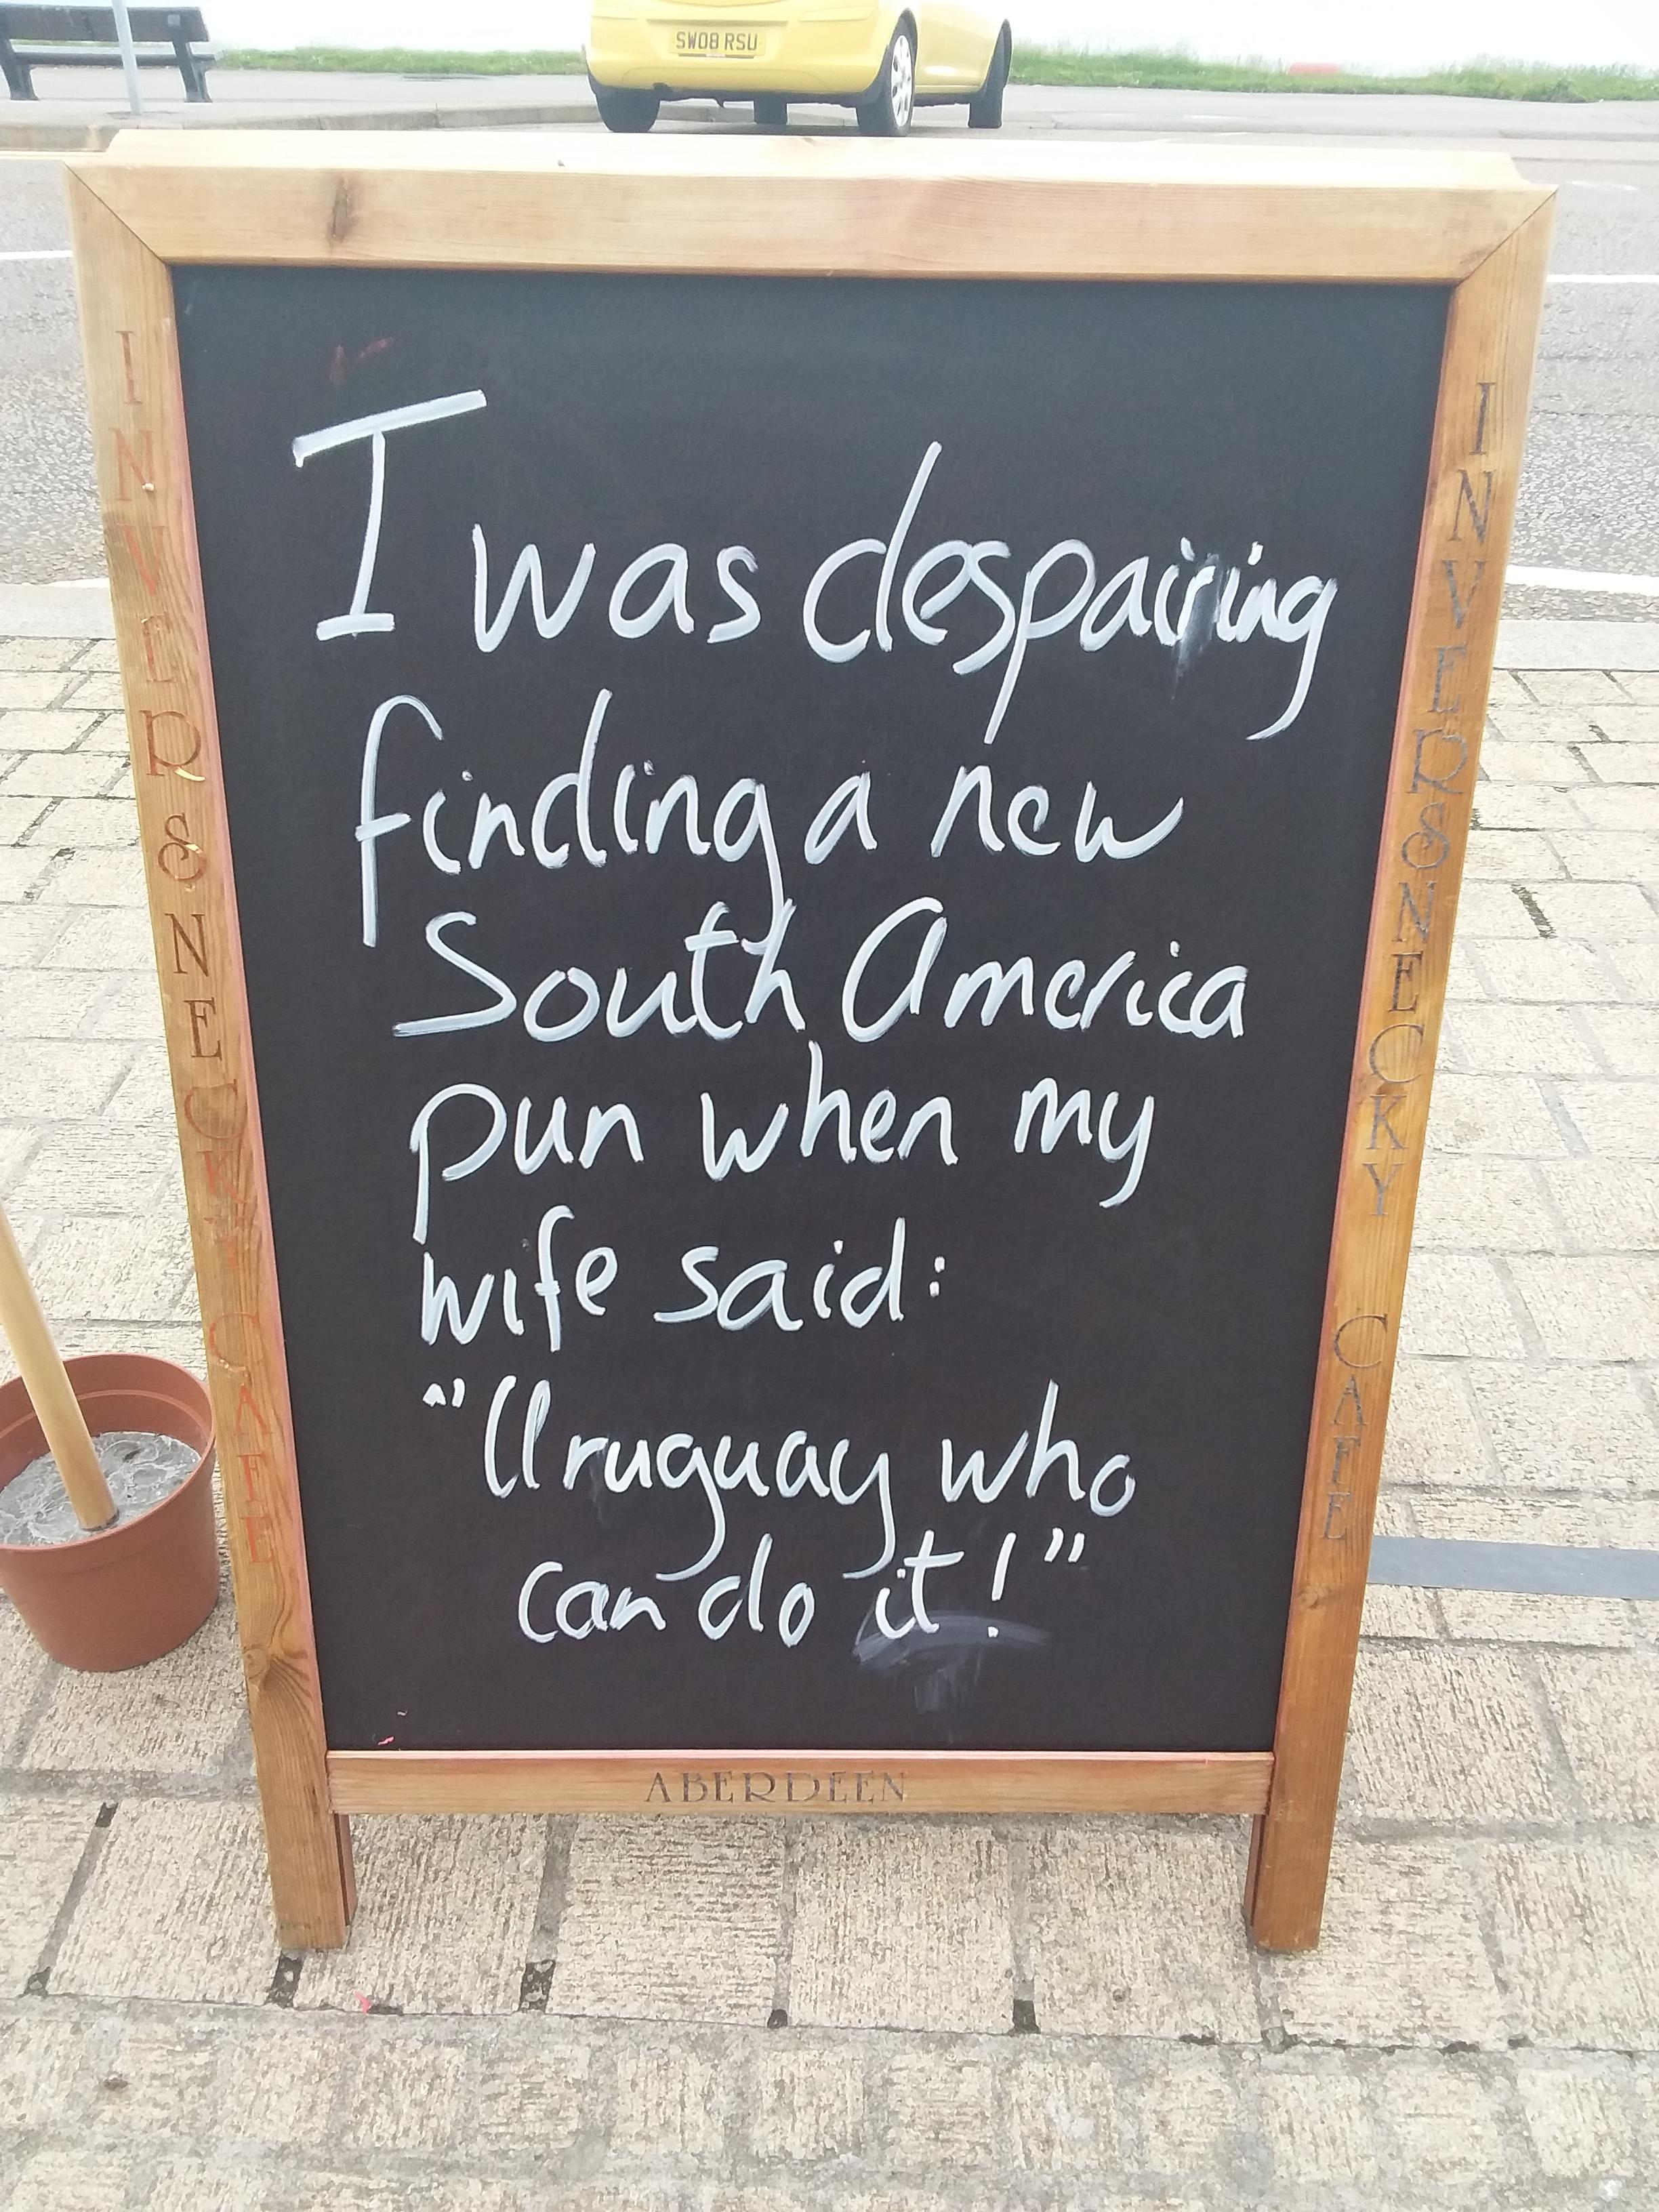 SW08 RSU
I was despairing
finding a new
South America
pun when my
wife said:
"Uruguay who
can do it!"
INVERSNECKY CAFE
INVERSNECKY CAFE
ABERDEEN